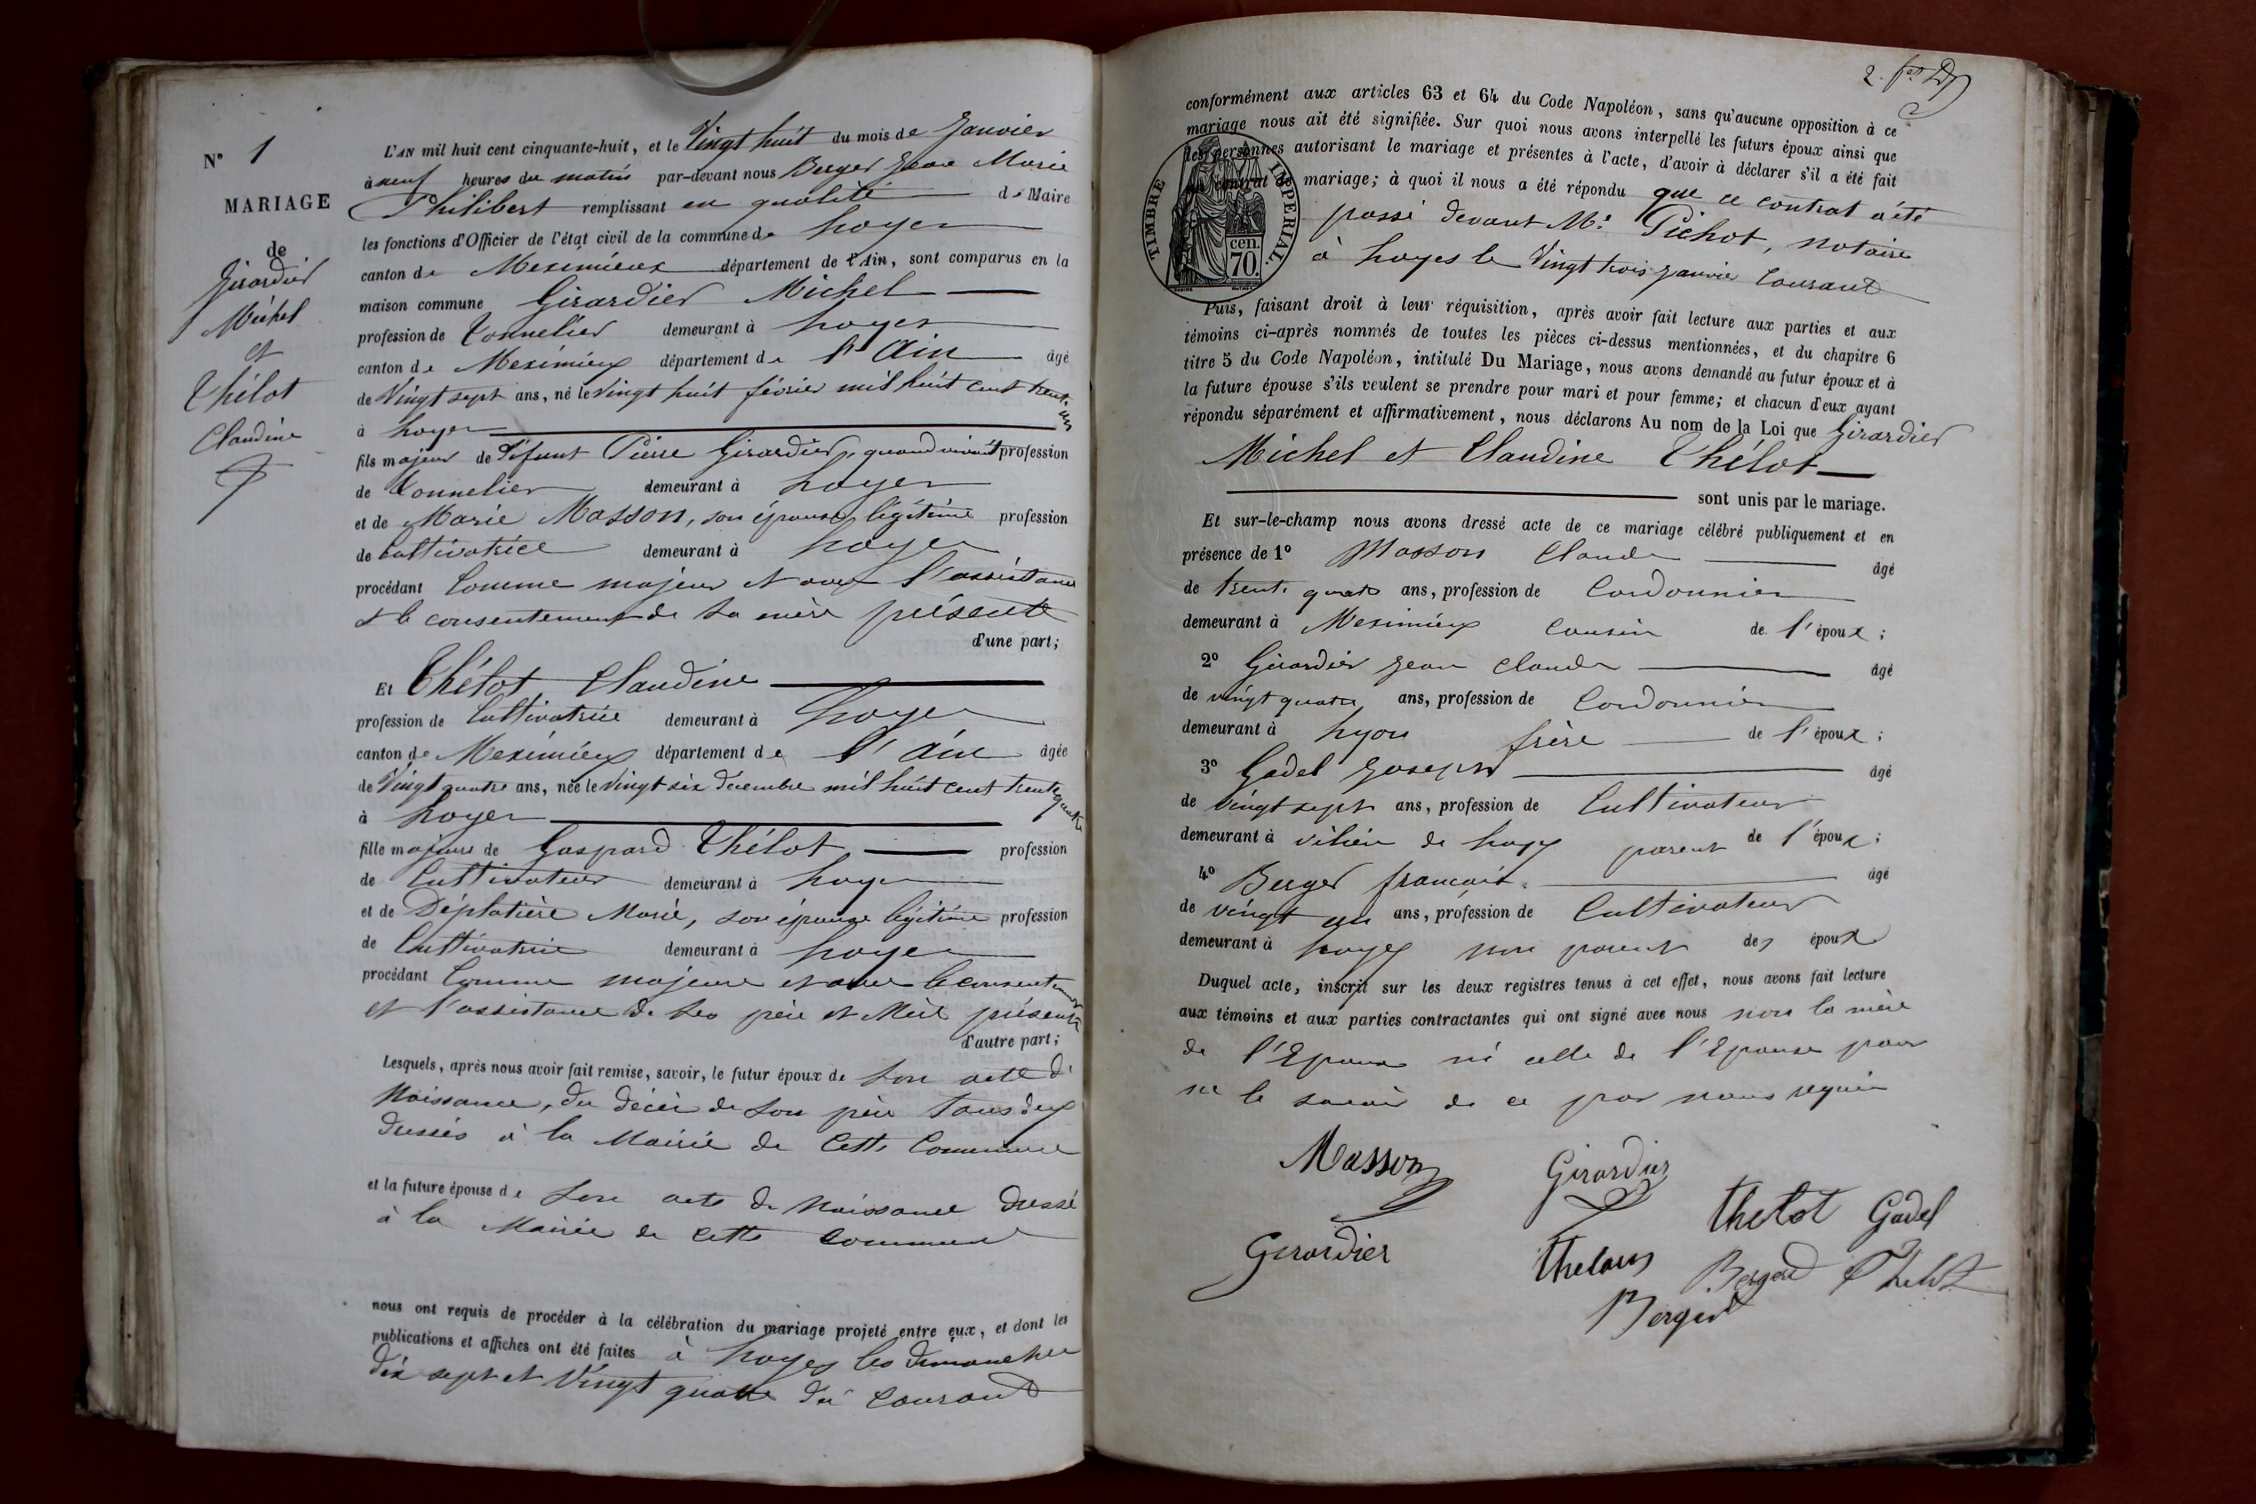 N° 1
MARIAGE
de
Girardier
Michel
et
Thélot
Claudine
L'AN mil huit cent cinquante-huit, et le Vingt huit du mois de Janvier
à neuf heures du matin par-devant nous Berger Jean Marie
Philibert remplissant en qualité de Maire
les fonctions d'Officier de l'état civil de la commune de Loyes
canton de Meximieux département de l'Ain, sont comparus en la
maison commune Girardier Michel
profession de Tonnelier demeurant à Loyes
canton de Meximieux département de l'Ain âgé
de Vingt sept ans, né le Vingt huit février mil huit cent trente un
à Loyes
fils majeur de Défunt Pierre Girardier, quand vivait profession
de Tonnelier demeurant à Loyes
et de Marie Masson, son épouse légitime profession
de Cultivatrice demeurant à Loyes
procédant Comme majeur et avec l'assistance
et le consentement de sa mère présente
d'une part;
Et Thélot Claudine
profession de Cultivatrice demeurant à Loyes
canton de Meximieux département de l'Ain âgée
de Vingt quatre ans, née le Vingt six décembre mil huit cent trente quatre
à Loyes
fille majeure de Gaspard Thélot profession
de Cultivateur demeurant à Loyes
et de Déplatière Marie, son épouse légitime profession
de Cultivatrice demeurant à Loyes
procédant Comme majeure et avec le consentement
et l'assistance de ses père et Mère présents
d'autre part;
Lesquels, après nous avoir fait remise, savoir, le futur époux de son acte de
Naissance, du décès de son père tous deux
dressés à la Mairie de cette Commune
et la future épouse de son acte de Naissance dressé
à la Mairie de cette Commune
nous ont requis de procéder à la célébration du mariage projeté entre eux, et dont les
publications et affiches ont été faites à Loyes les dimanches
dix sept et Vingt quatre du courant
conformément aux articles 63 et 64 du Code Napoléon, sans qu'aucune opposition à ce
mariage nous ait été signifiée. Sur quoi nous avons interpellé les futurs époux ainsi que
les personnes autorisant le mariage et présentes à l'acte, d'avoir à déclarer s'il a été fait
un contrat de mariage; à quoi il nous a été répondu que ce contrat a été
passé devant Me Pichot, notaire
à Loyes le Vingt trois janvier Courant
TIMBRE IMPERIAL.
70 cen.
Puis, faisant droit à leur réquisition, après avoir fait lecture aux parties et aux
témoins ci-après nommés de toutes les pièces ci-dessus mentionnées, et du chapitre 6
titre 5 du Code Napoléon, intitulé Du Mariage, nous avons demandé au futur époux et à
la future épouse s'ils veulent se prendre pour mari et pour femme; et chacun d'eux ayant
répondu séparément et affirmativement, nous déclarons Au nom de la Loi que Girardier
Michel et Claudine Thélot
sont unis par le mariage.
Et sur-le-champ nous avons dressé acte de ce mariage célébré publiquement et en
présence de 1° Masson Claude âgé
de trente quatre ans, profession de Cordonnier
demeurant à Meximieux cousin de l'époux;
2° Girardier Jean Claude âgé
de vingt quatre ans, profession de Cordonnier
demeurant à Lyon frère de l'époux;
3° Gadel Joseph âgé
de vingt sept ans, profession de Cultivateur
demeurant à vilieu de Loyes parent de l'époux;
4° Berger françois âgé
de vingt un ans, profession de Cultivateur
demeurant à Loyes non parent des époux
Duquel acte, inscrit sur les deux registres tenus à cet effet, nous avons fait lecture
aux témoins et aux parties contractantes qui ont signé avec nous non la mère
de l'Epoux ni celle de l'Epouse pour
ne le savoir de ce par nous requis
Masson Girardier
Thelot Gadel
Girardier
Berger Thelot
Berger